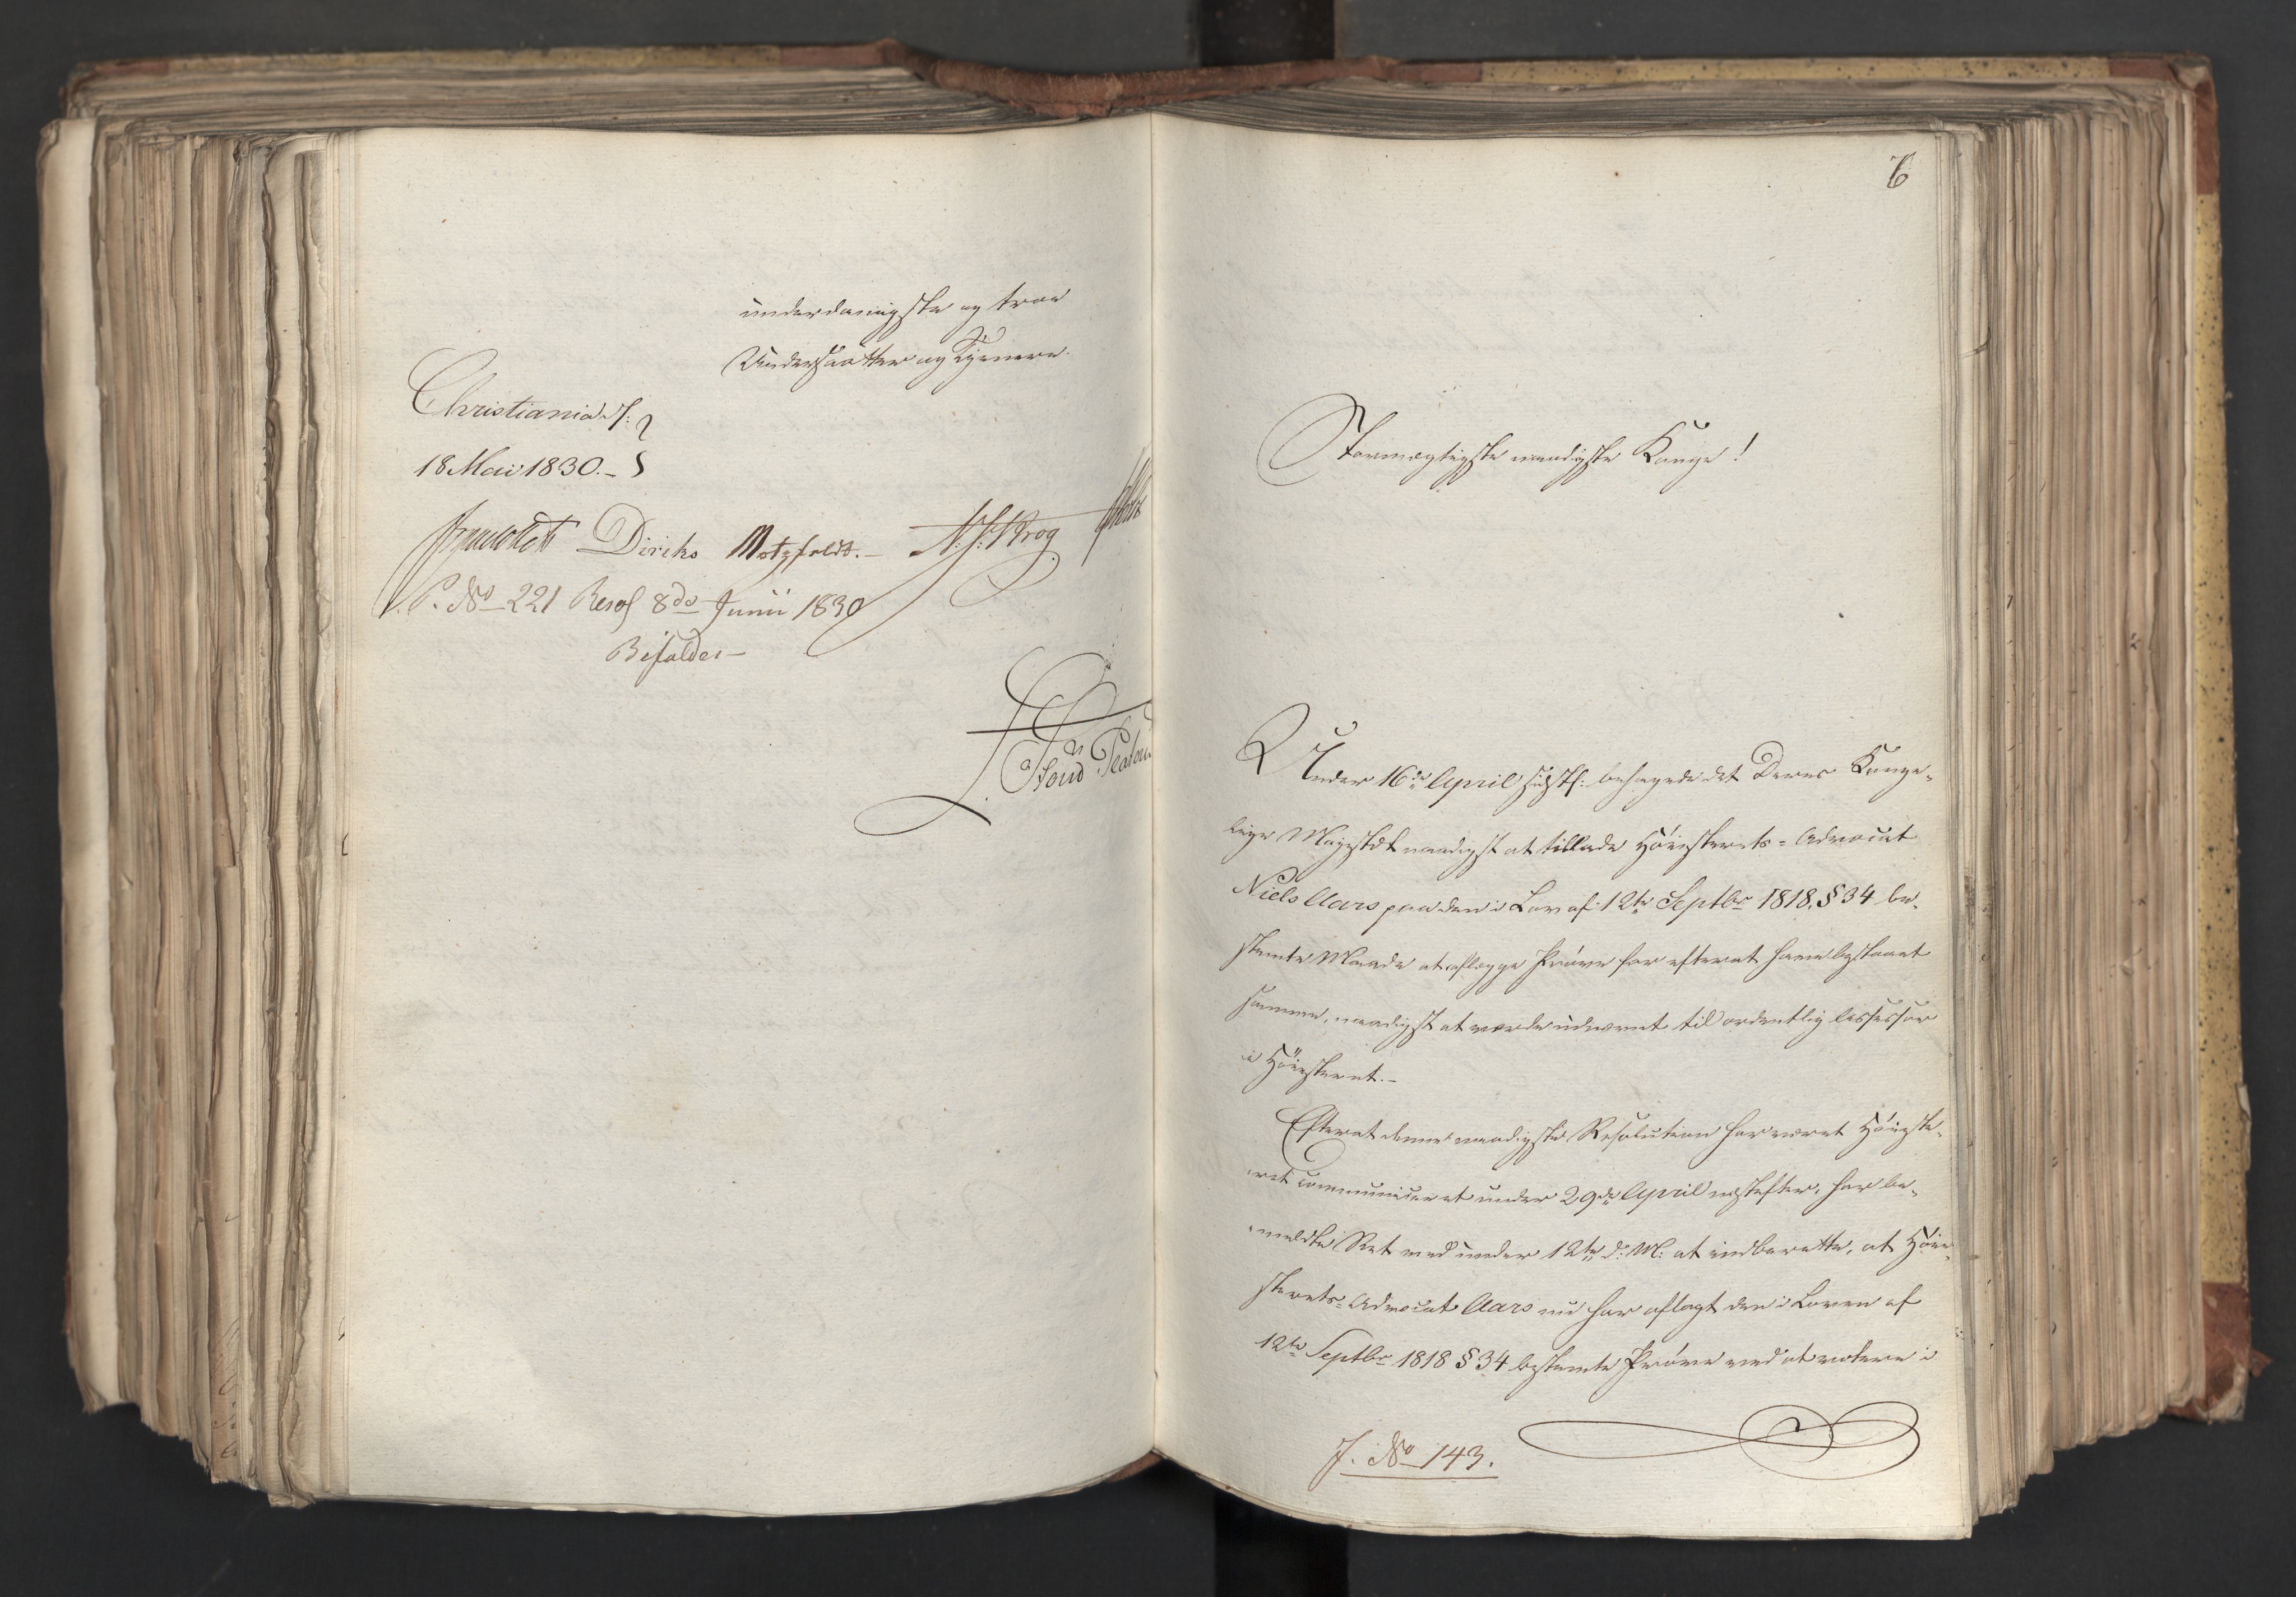 underdanigste og troe
Undersaatter og Tjenere.
Christiania d:
18 Mai 1830.-
Diriks Motzfeldt.- N. J. Krog
P. No 221 Resol 8de Junii 1830
Bifaldes-
6
Stormægtigste naadigste Konge!
Under 16de April sidstl: behagede det Deres Konge-
lige Majestæt naadigst at tillade Höiesterets-Advocat
Niels Aars paa den i Lov af 12te Septbr 1818. § 34 be-
stemte Maade at aflægge Pröve for efterat have bestaaet
samme, naadigst at vorde udnævnt til ordentlig Assessor
i Höiesteret.-
Efterat denne naadigste Resolution har været Höieste-
ret communiceret under 29de April næstefter, har be-
meldte Ret med under 12te d: M: at indberette, at Höie-
sterets-Advocat Aars nu har aflagt den i Loven af
12te Septbr 1818 § 34 bestemte Pröve ved at votere i
J. No 143.